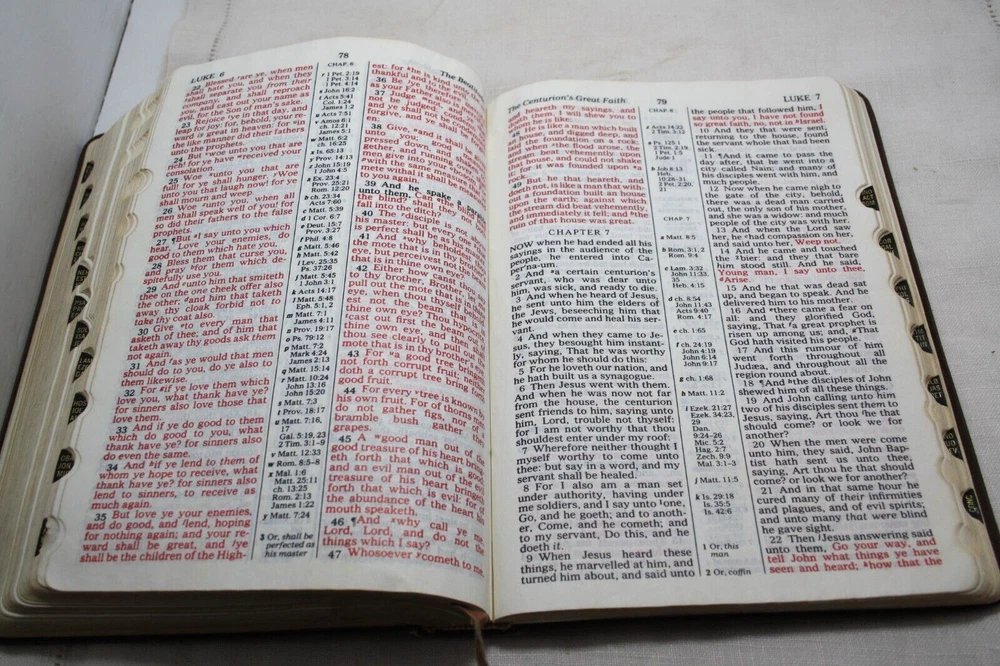 LUKE 6
78
The
22 Blessed are ye, when men
shall hate you, and when they
shall separate you from their
company, and shall reproach
you, and cast out your name as
evil, for the Son of man's sake.
23 Rejoice ye in that day, and
leap for joy: for, behold, your re-
ward is great in heaven: for in
the like manner did their fathers
unto the prophets.
24 But woe unto you that are
rich! for ye have received your
consolation.
25 Woe unto you that are
full! for ye shall hunger. Woe
unto you that laugh now! for ye
shall mourn and weep.
26 Woe unto you, when all
men shall speak well of you! for
so did their fathers to the false
prophets.
27 ¶But I say unto you which
hear, Love your enemies, do
good to them which hate you,
28 Bless them that curse you,
and pray for them which de-
spitefully use you.
29 And unto him that smiteth
thee on the one cheek offer also
the other; and him that taketh
away thy cloke forbid not to
take thy coat also.
30 Give to every man that
asketh of thee; and of him that
taketh away thy goods ask them
not again.
31 And as ye would that men
should do to you, do ye also to
them likewise.
32 For if ye love them which
love you, what thank have ye?
for sinners also love those that
love them.
33 And if ye do good to them
which do good to you, what
thank have ye? for sinners also
do even the same.
34 And if ye lend to them of
whom ye hope to receive, what
thank have ye? for sinners also
lend to sinners, to receive as
much again.
35 But love ye your enemies,
and do good, and lend, hoping
for nothing again; and your re-
ward shall be great, and ye
shall be the children of the High-
CHAP. 6
1 Pet. 2:19
1 Pet. 3:14
1 Pet. 4:14
John 16:2
Acts 5:41
Col. 1:24
James 1:2
Acts 7:51
Amos 6:1
ch. 12:21
James 5:1
Matt. 6:2
ch. 16:25
Is. 65:13
Prov. 14:13
John 15:19
1 John 4:5
Ex. 23:4
Prov. 25:21
Rom. 12:20
ch. 23:34
Acts 7:60
Matt. 5:39
1 Cor. 6:7
Deut. 15:7
Prov. 3:27
Phil. 4:8
Matt. 5:46
Matt. 5:42
Lev. 25:35
Ps. 37:26
Matt. 5:45
1 John 3:1
Acts 14:17
Matt. 5:48
Eph. 5:1, 2
Matt. 7:1
James 4:11
Prov. 19:17
Ps. 79:12
Matt. 7:2
Mark 4:24
James 2:13
Matt. 15:14
Matt. 10:24
John 13:16
John 15:20
Matt. 7:3
Prov. 18:17
Matt. 7:16,
17
Gal. 5:19, 23
2 Tim. 3:1-9
Matt. 12:33
Rom. 8:5-8
Mal. 1:6
Matt. 25:11
ch. 13:25
Rom. 2:13
James 1:22
Matt. 7:24
3 Or, shall be
perfected as
his master
est: for he is kind unto
thankful and to the
36 Be ye
as your Father
37 Judge not,
not be judged:
and ye shall not be
forgive, and ye shall
en:
38 Give, and it shall
unto you; good
pressed down, and
gether, and running
men give into your
with the same
mete withal it shall be
to you again.
39 And he spake a parable
unto them, Can the
the blind? shall they not
fall into the ditch?
40 The disciple is not
his master: but every one
is perfect shall be as his
41 And why beholdest
the mote that is in thy
eye, but perceivest not the
that is in thine own eye?
42 Either how canst thou
to thy brother, Brother, let me
pull out the mote that is in
eye, when thou thyself
est not the beam that is in
thine own eye? Thou hypocrite,
cast out first the beam out of
thine own eye, and then shalt
thou see clearly to pull out the
mote that is in thy brother's eye.
43 For a good tree bringeth
not forth corrupt fruit; neither
doth a corrupt tree bring forth
good fruit.
44 For every tree is known by
his own fruit. For of thorns men
do not gather figs, nor of a
bramble bush gather they
grapes.
45 A good man out of the
good treasure of his heart bring-
eth forth that which is good;
and an evil man out of the evil
treasure of his heart bringeth
forth that which is evil: for of
the abundance of the heart his
mouth speaketh.
46 ¶And why call ye me,
Lord, Lord, and do not the
things which I say?
47 Whosoever cometh to me,
The Centurion's Great Faith
79
LUKE 7
and heareth my sayings, and
doeth them, I will shew you to
whom he is like:
48 He is like a man which built
an house, and digged deep, and
laid the foundation on a rock:
and when the flood arose, the
stream beat vehemently upon
that house, and could not shake
it: for it was founded upon a
rock.
49 But he that heareth, and
doeth not, is like a man that with-
out a foundation built an house
upon the earth; against which
the stream did beat vehemently,
and immediately it fell; and the
ruin of that house was great.
CHAPTER 7
NOW when he had ended all his
sayings in the audience of the
people, he entered into Ca-
per'na-um.
2 And a certain centurion's
servant, who was dear unto
him, was sick, and ready to die.
3 And when he heard of Jesus,
he sent unto him the elders of
the Jews, beseeching him that
he would come and heal his ser-
vant.
4 And when they came to Je-
sus, they besought him instant-
ly, saying, That he was worthy
for whom he should do this:
5 For he loveth our nation, and
he hath built us a synagogue.
6 Then Jesus went with them.
And when he was now not far
from the house, the centurion
sent friends to him, saying unto
him, Lord, trouble not thyself:
for I am not worthy that thou
shouldest enter under my roof:
7 Wherefore neither thought I
myself worthy to come unto
thee: but say in a word, and my
servant shall be healed.
8 For I also am a man set
under authority, having under
me soldiers, and I say unto one,
Go, and he goeth; and to anoth-
er, Come, and he cometh; and
to my servant, Do this, and he
doeth it.
9 When Jesus heard these
things, he marvelled at him, and
turned him about, and said unto
CHAP. 6
Acts 14:22
2 Tim. 3:12
Ps. 125:1
2 Tim. 2:19
1 Pet. 1:5
Jude 1
Job 8:13
Heb.
10:26-31
2 Pet. 2:20,
21
CHAP. 7
a Matt. 8:5
b Rom. 3:1, 2
Rom. 9:4
c Lam. 3:32
John 11:33,
35
Heb. 4:15
d ch. 8:54
John 11:43
Acts 9:40
Rom. 4:17
e ch. 1:65
f ch. 24:19
John 4:19
John 6:14
John 9:17
g ch. 1:68
h Matt. 11:2
i Ezek. 21:27
Ezek. 34:23,
29
Dan.
9:24-26
Mic. 5:2
Hag. 2:7
Zech. 9:9
Mal. 3:1-3
j Matt. 11:5
k Is. 29:18
Is. 35:5
Is. 42:6
1 Or, this
man
2 Or, coffin
the people that followed him, I
say unto you, I have not found
so great faith, no, not in Israel.
10 And they that were sent,
returning to the house, found
the servant whole that had been
sick.
11 ¶And it came to pass the
day after, that he went into a
city called Nain; and many of
his disciples went with him, and
much people.
12 Now when he came nigh to
the gate of the city, behold,
there was a dead man carried
out, the only son of his mother,
and she was a widow: and much
people of the city was with her.
13 And when the Lord saw
her, he had compassion on her,
and said unto her, Weep not.
14 And he came and touched
the bier: and they that bare
him stood still. And he said,
Young man, I say unto thee,
Arise.
15 And he that was dead sat
up, and began to speak. And he
delivered him to his mother.
16 And there came a fear on
all: and they glorified God,
saying, That a great prophet is
risen up among us; and, That
God hath visited his people.
17 And this rumour of him
went forth throughout all
Judæa, and throughout all the
region round about.
18 ¶And the disciples of John
shewed him of all these things.
19 And John calling unto him
two of his disciples sent them to
Jesus, saying, Art thou he that
should come? or look we for
another?
20 When the men were come
unto him, they said, John Bap-
tist hath sent us unto thee,
saying, Art thou he that should
come? or look we for another?
21 And in that same hour he
cured many of their infirmities
and plagues, and of evil spirits;
and unto many that were blind
he gave sight.
22 Then Jesus answering said
unto them, Go your way, and
tell John what things ye have
seen and heard; how that the